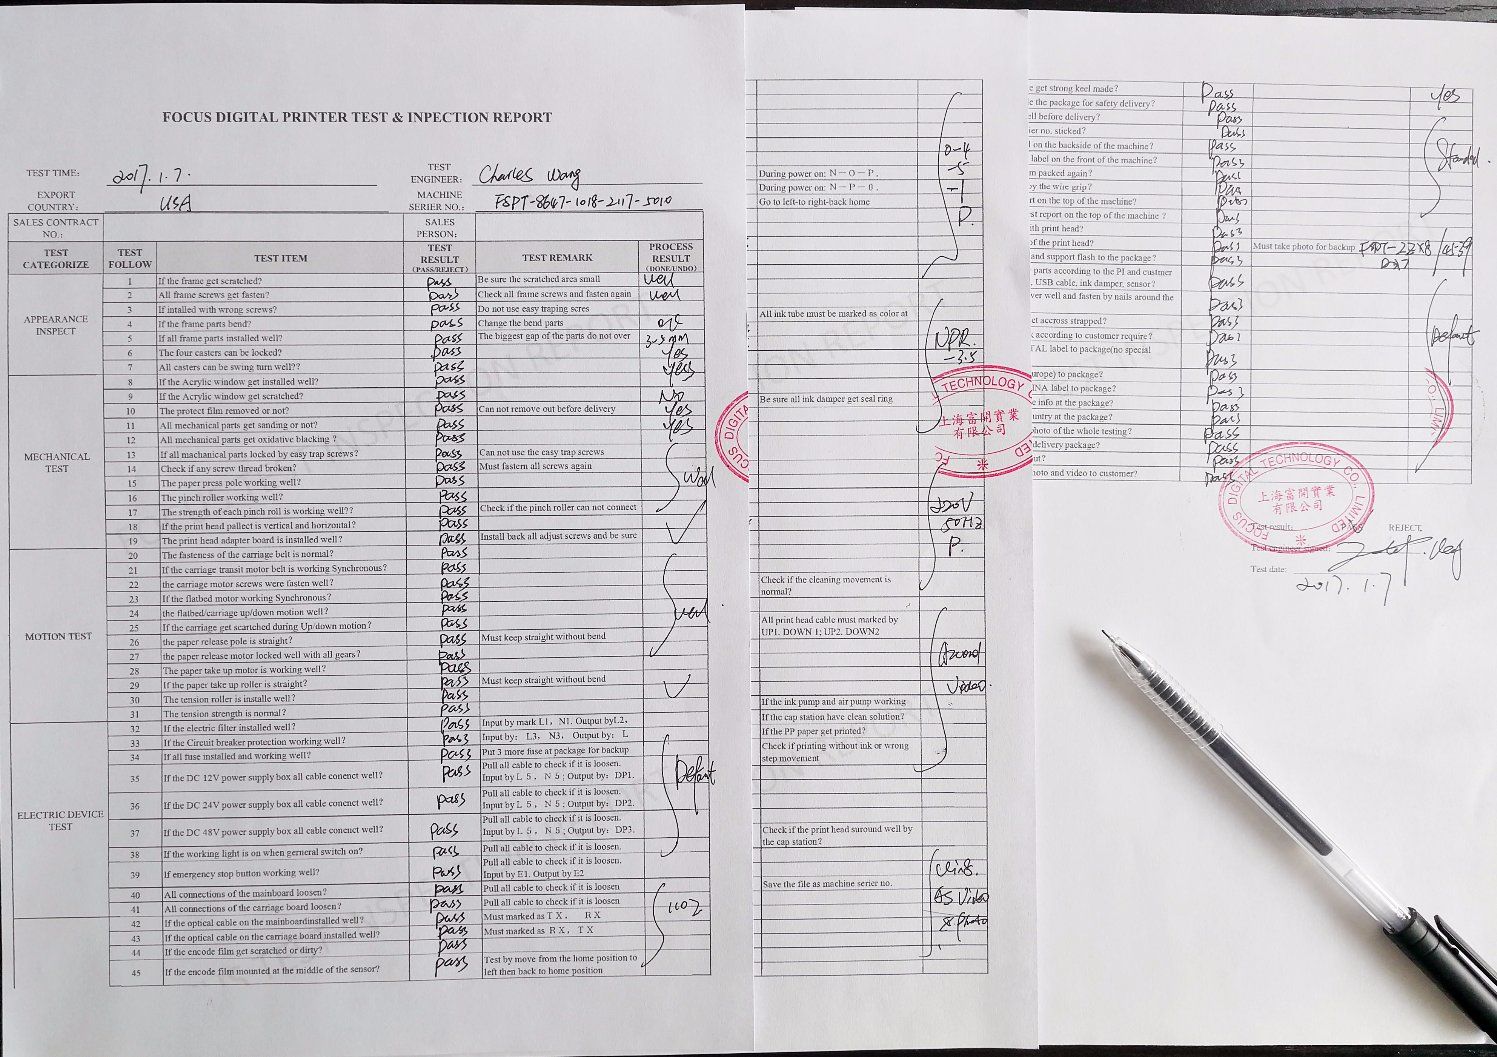 FOCUS DIGITAL PRINTER TEST & INPECTION REPORT
TEST TIME: 2017. 1. 7. TEST ENGINEER: Charles Wang
EXPORT COUNTRY: USA MACHINE SERIER NO.: FSPT-8647-1018-2117-5010
SALES CONTRACT NO.: SALES PERSON:
TEST CATEGORIZE TEST FOLLOW TEST ITEM TEST RESULT (PASS/REJECT) TEST REMARK PROCESS RESULT (DONE/UNDO)
APPEARANCE INSPECT
1 If the frame get scratched? pass Be sure the scratched area small well
2 All frame screws get fasten? pass Check all frame screws and fasten again well
3 If intalled with wrong screws? pass Do not use easy traping scres
4 If the frame parts bend? pass Change the bend parts
5 If all frame parts installed well? pass The biggest gap of the parts do not over 3-5mm
6 The four casters can be locked? pass Yes
7 All casters can be swing turn well?? pass Yes
MECHANICAL TEST
8 If the Acrylic window get installed well? pass
9 If the Acrylic window get scratched? pass No
10 The protect film removed or not? pass Can not remove out before delivery Yes
11 All mechanical parts get sanding or not? pass Yes
12 All mechanical parts get oxidative blacking ? pass
13 If all machanical parts locked by easy trap screws? pass Can not use the easy trap screws
14 Check if any screw thread broken? pass Must fastern all screws again
15 The paper press pole working well? pass
16 The pinch roller working well? pass
17 The strength of each pinch roll is working well?? pass Check if the pinch roller can not connect
18 If the print hend pallect is vertical and horizontal? pass
19 The print head adapter board is installed well? pass Install back all adjust screws and be sure
MOTION TEST
20 The fasteness of the carriage belt is normal? pass
21 If the carriage transit motor belt is working Synchronous? pass
22 the carriage motor screws were fasten well? pass
23 If the flatbed motor working Synchronous? pass
24 the flatbed/carriage up/down motion well? pass
25 If the carriage get scartched during Up/down motion? pass
26 the paper release pole is straight? pass Must keep straight without bend
27 the paper release motor locked well with all gears? pass
28 The paper take up motor is working well? pass
29 If the paper take up roller is straight? pass Must keep straight without bend
30 The tension roller is installe well? pass
31 The tension strength is normal? pass
ELECTRIC DEVICE TEST
32 If the electric filter installed well? pass Input by mark L1, N1. Output byL2,
33 If the Circuit breaker protection working well? pass Input by: L3, N3, Output by: L
34 If all fuse installed and working well? pass Put 3 more fuse at package for backup
35 If the DC 12V power supply box all cable conenct well? pass Pull all cable to check if it is loosen. Input by L 5, N 5 ; Output by: DP1.
36 If the DC 24V power supply box all cable conenct well? pass Pull all cable to check if it is loosen. Input by L 5, N 5 ; Output by: DP2.
37 If the DC 48V power supply box all cable conenct well? pass Pull all cable to check if it is loosen. Input by L 5, N 5 ; Output by: DP3.
38 If the working light is on when gerneral switch on? pass Pull all cable to check if it is loosen.
39 If emergency stop button working well? pass Pull all cable to check if it is loosen. Input by E1. Output by E2
40 All connections of the mainboard loosen? pass Pull all cable to check if it is loosen
41 All connections of the carriage board loosen? pass Pull all cable to check if it is loosen
42 If the optical cable on the mainboardinstalled well? pass Must marked as T X , R X
43 If the optical cable on the carriage board installed well? pass Must marked as R X , T X
44 If the encode film get scratched or dirty? pass
45 If the encode film mounted at the middle of the sensor? pass Test by move from the home position to left then back to home position
0-4
During power on: N－O－P, -5
During power on: N－P－0, -1
Go to left-to right-back home P.
All ink tube must be marked as color at
NPR.
-3.5
Be sure all ink damper get seal ring
FOCUS DIGITAL TECHNOLOGY CO., LIMITED
上海富開實業
有限公司
220V
50HZ
P.
Check if the cleaning movement is normal?
All print head cable must marked by UP1, DOWN 1; UP2, DOWN2
Video.
If the ink pump and air pump working
If the cap station have clean solution?
If the PP paper get printed?
Check if printing without ink or wrong step movement
Check if the print head suround well by the cap station?
Save the file as machine serier no.
AS Video
& photo
e get strong keel made? Pass Yes
e the package for safety delivery? pass
ell before delivery? pass
ier no. sticked? pass
l on the backside of the machine? pass
label on the front of the machine? pass
m packed again? pass
by the wire grip? pass
rt on the top of the machine? pass
st report on the top of the machine ? pass
ith print head? pass
of the print head? pass Must take photo for backup
and support flash to the package? pass
parts according to the PI and custmer
, USB cable, ink damper, sensor? pass
ver well and fasten by nails around the
pass
et accross strapped? pass
k according to customer require? pass
TAL label to package(no special
pass
urope) to package? pass
INA label to package? pass
e info at the package? pass
untry at the package? pass
photo of the whole testing? pass
delivery package? pass
ut? pass
hoto and video to customer? pass
FOCUS DIGITAL TECHNOLOGY CO., LIMITED
上海富開實業
有限公司
Test result: REJECT
Test engineer signed:
Test date: 2017. 1. 7